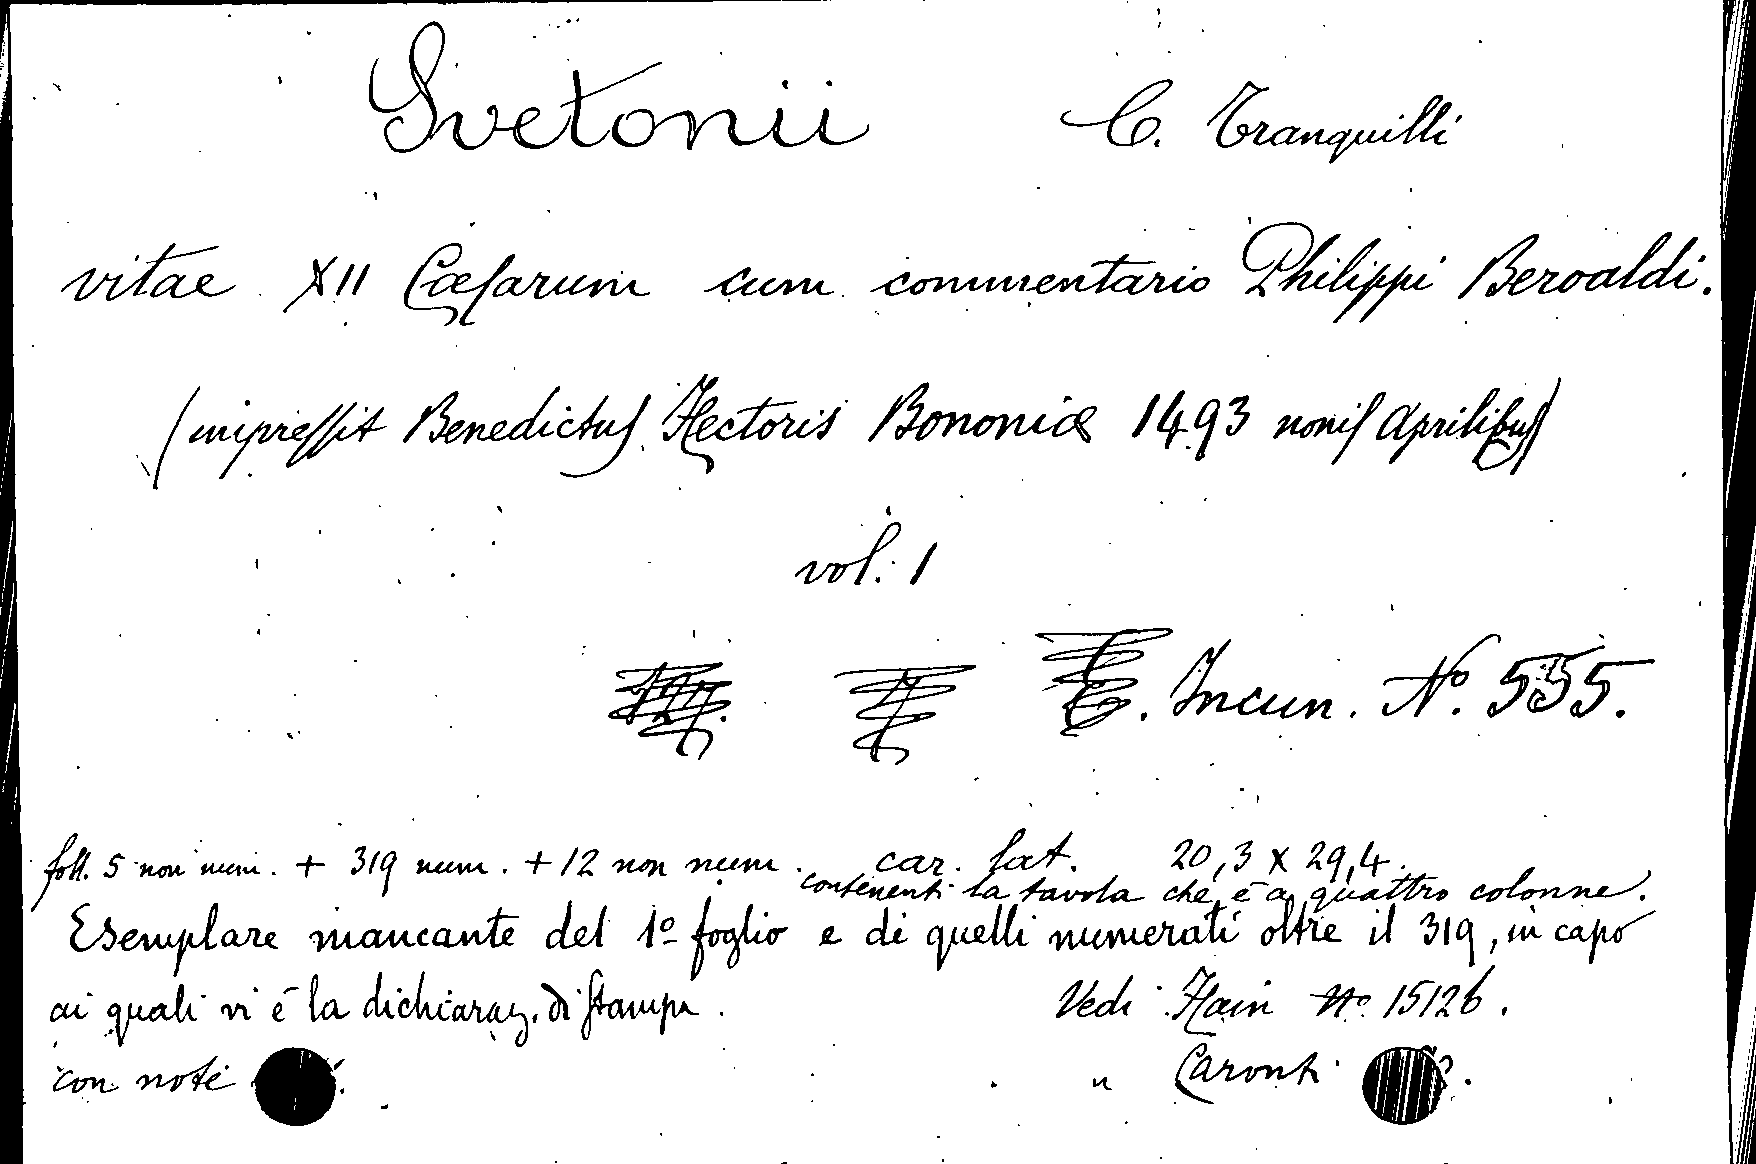 Svetonii C. Tranquilli
vitae XII Cæſarum cum commentario Philippi Beroaldi.
(impreſſit Benedictuſ Hectoris Bononiæ 1493 noniſ Aprilibuſ)
vol. 1
Incun. Nº. 555.
foll. 5 non num. + 319 num. + 12 non num. car. lat. 20,3 x 29,4.
contenenti la tavola che é a quattro colonne.
Esemplare mancante del 1º foglio e di quelli numerati oltre il 319, in capo
ai quali vi é la dichiaraz. di ſtampa.
Vedi Hain Nº 15126.
con note
" Caronti